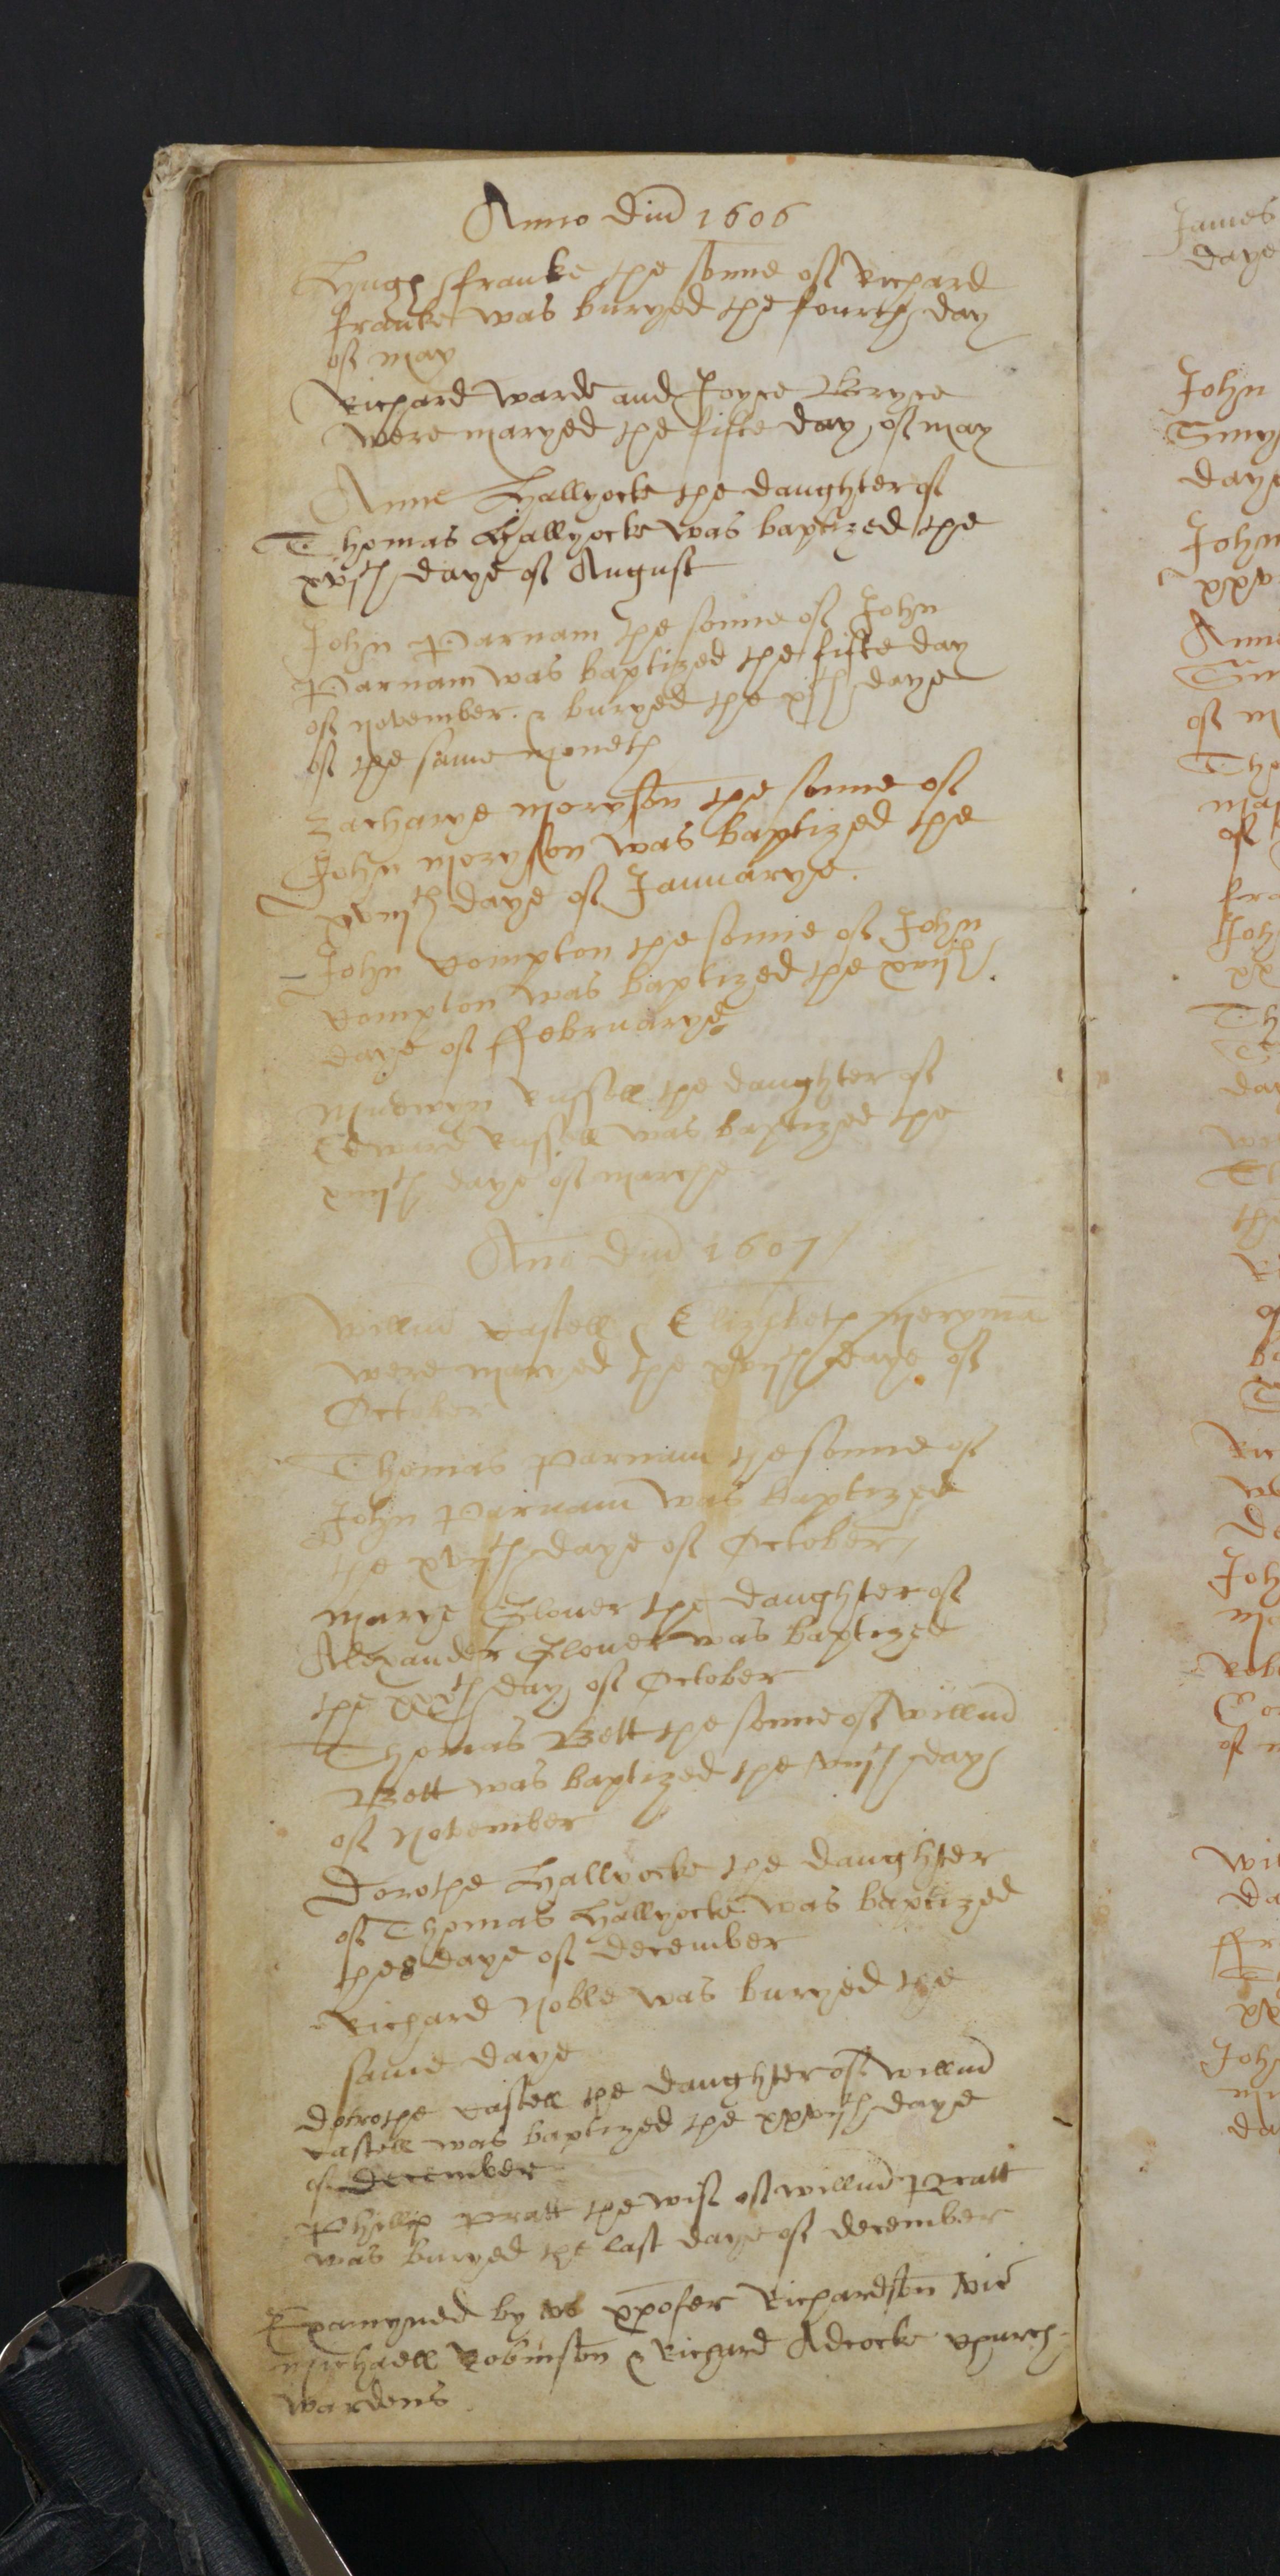 Anno Dni 1606
Hugh ffranke the sonne of Richard
franke was buryed the fourth day
of may
Richard Warde and Joyce Bryce
were maryed the fifte day of may
Anne Hallyocke the daughter of
Thomas Hallyocke was baptized the
xvjth daye of August
John Parnam the sonne of John
Parnam was baptized the fifte day
of November & buryed the xjth daye
of the same moneth
Zacharye Moryson the sonne of
John Moryson was baptized the
xviijth daye of Januarye.
John Compton the sonne of John
Compton was baptized the xviijth
daye of ffebruarye
Mudwyn Russell the daughter of
Edward Russell was baptized the
daye of marche
Ano Dni 1607
Willm Castell & Elizabeth Meryman
were maryed the daye of
October
Thomas Parnam the sonne of
John Parnam was baptized
the xviijth daye of October
Marye Glover the daughter of
Alexander Glover was baptized
the xxth day of October
Thomas Bott the sonne of Willm
Bott was baptized the viijth day
of November
Dorothe Hallyocke the daughter
of Thomas Hallyocke was baptized
the 8 daye of December
Richard Noble was buryed the
same daye
Dorothe Castell the daughter of Willm
Castell was baptized the xxvjth daye
of December
Phillip Pratt the wif of Willm Pratt
was buryed the last daye of December
Examyned by us xpofer Richardson vic
Michaell Robinson & Richard Adcocke church
wardens